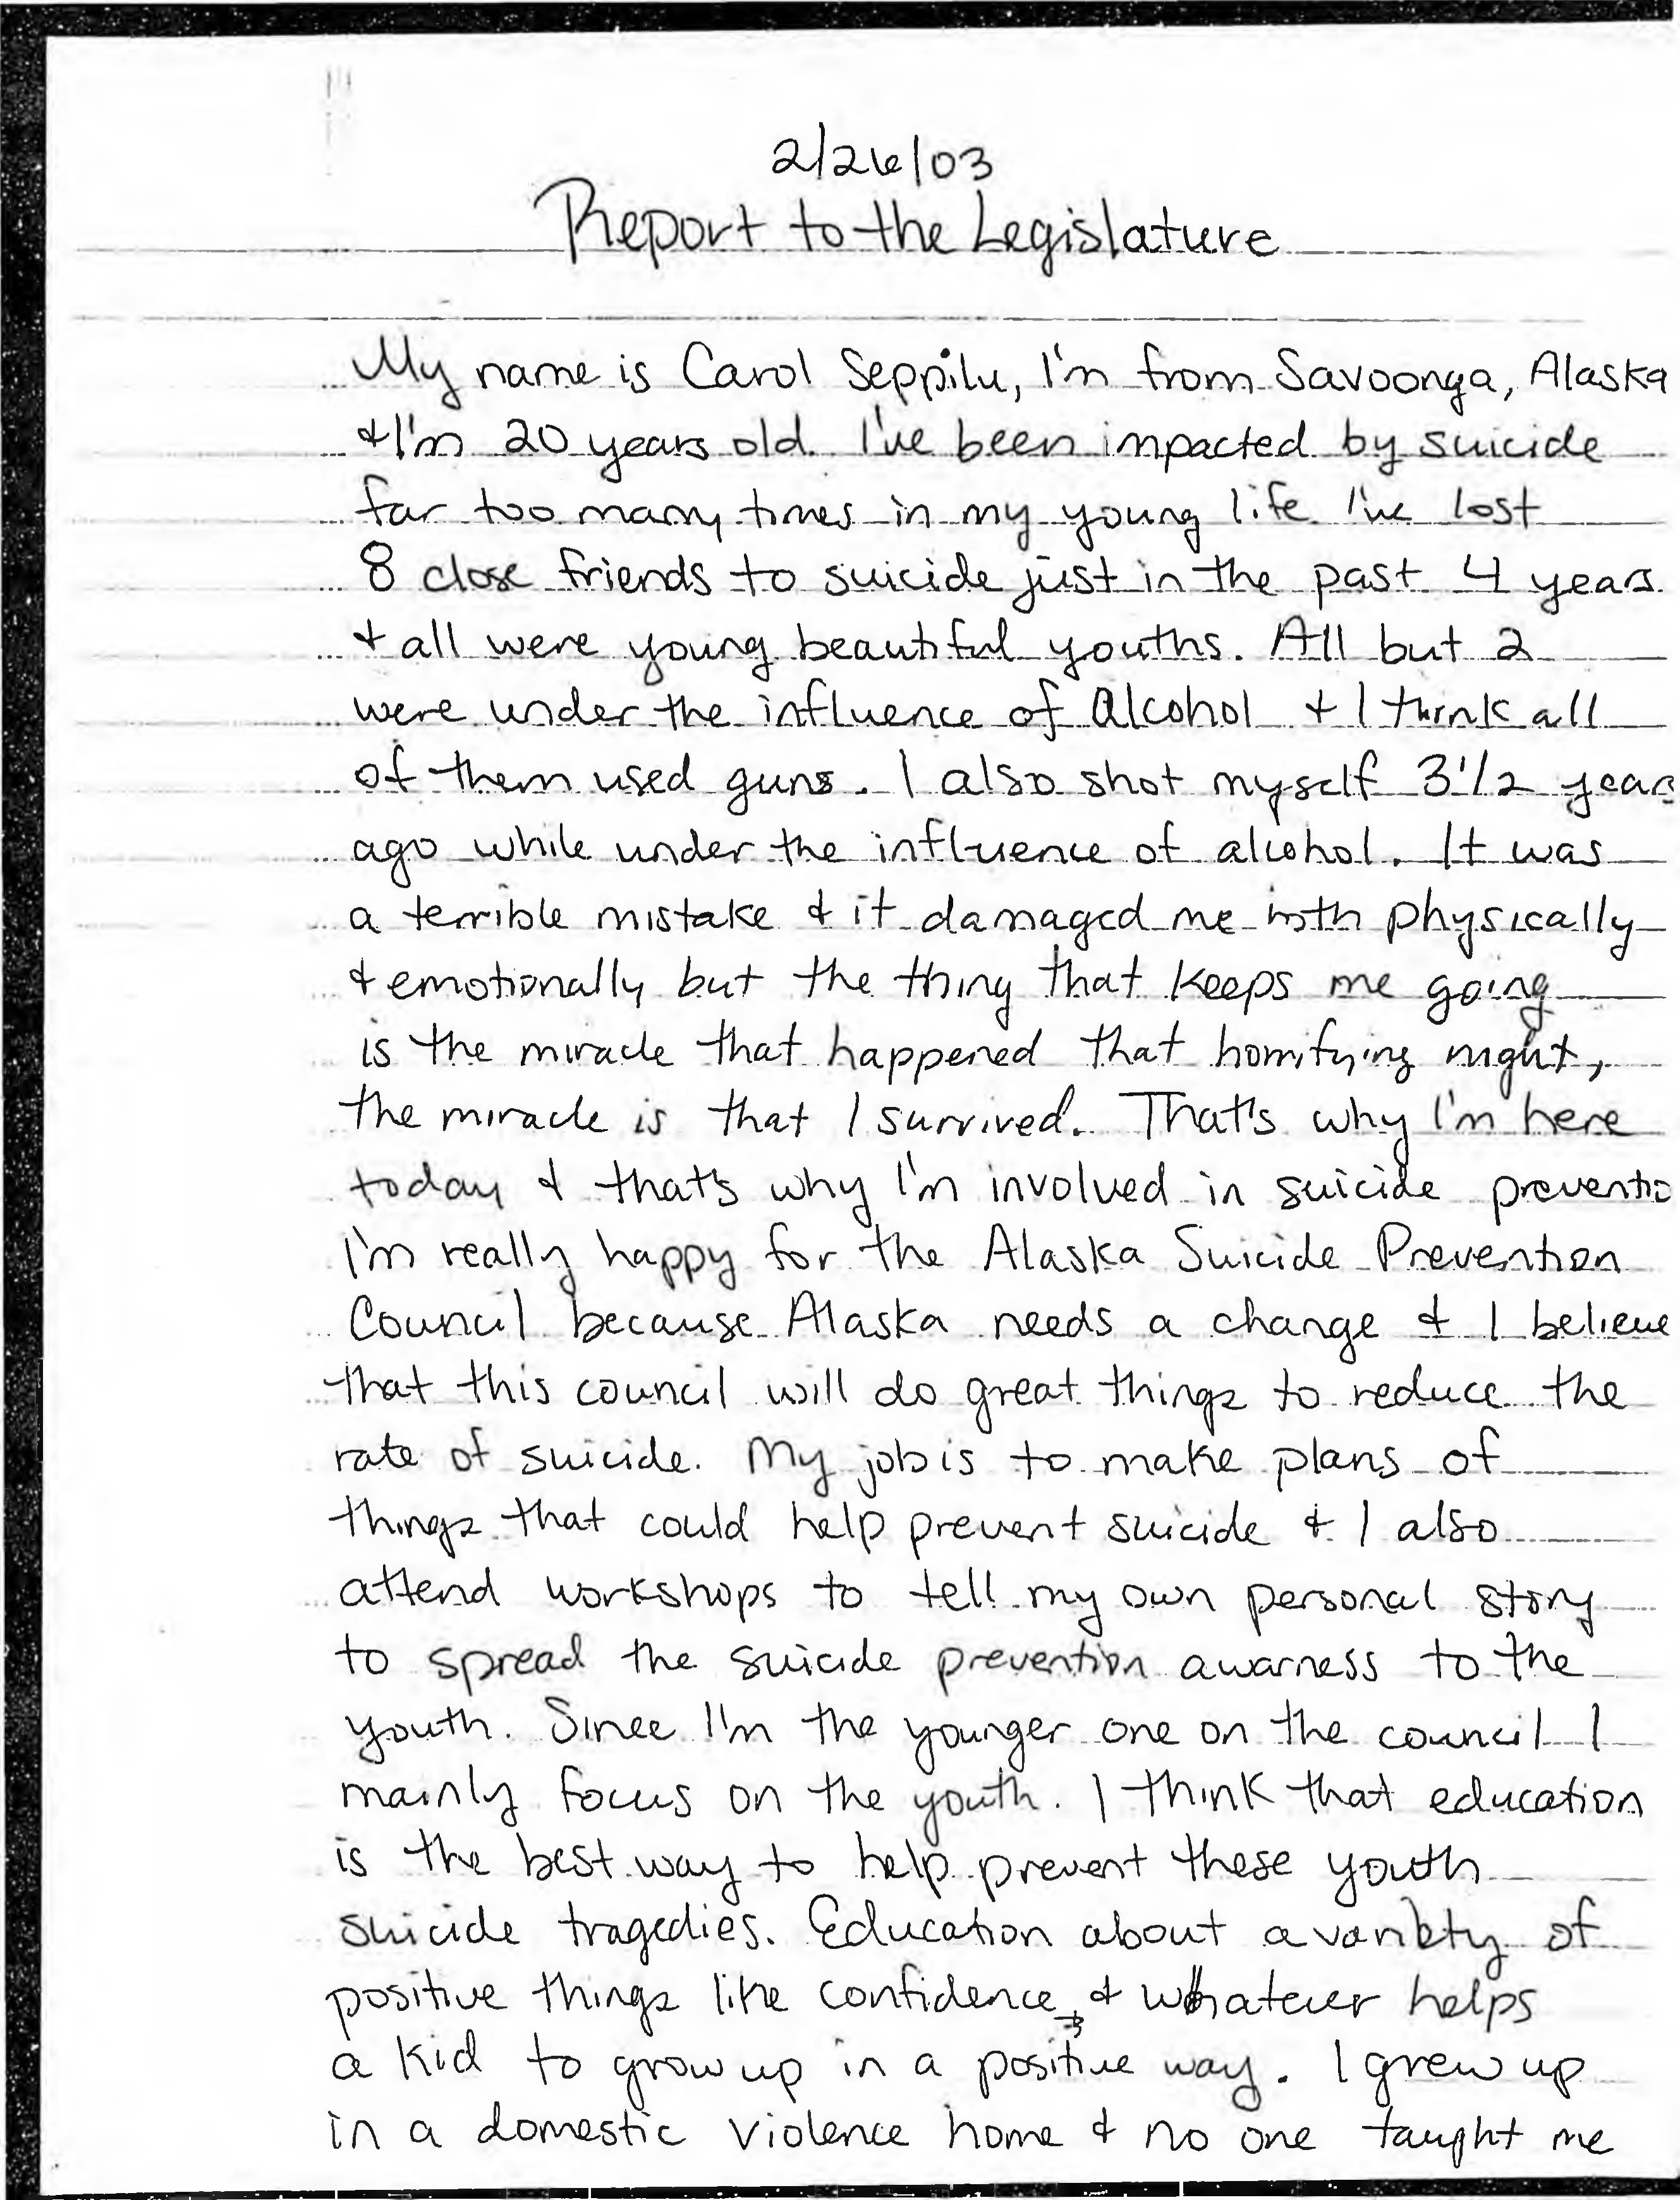 2/26/03
Report to the Legislature
My name is Carol Seppilu, I'm from Savoonga, Alaska
& I'm 20 years old. I've been impacted by suicide
far too many times in my young life. I've lost
8 close friends to suicide just in the past 4 years
& all were young beautiful youths. All but 2
were under the influence of Alcohol & I think all
of them used guns. I also shot myself 3 1/2 years
ago while under the influence of alcohol. It was
a terrible mistake & it damaged me both physically
& emotionally but the thing that keeps me going
is the miracle that happened that horrifying night,
the miracle is that I survived. That's why I'm here
today & that's why I'm involved in suicide preventio
I'm really happy for the Alaska Suicide Prevention
Council because Alaska needs a change & I believe
that this council will do great things to reduce the
rate of suicide. My job is to make plans of
things that could help prevent suicide & I also
attend workshops to tell my own personal story
to spread the suicide prevention awarness to the
youth. Since I'm the younger one on the council I
mainly focus on the youth. I think that education
is the best way to help prevent these youth
suicide tragedies. Education about a variety of
positive things like confidence, & whatever helps
a kid to grow up in a positive way. I grew up
in a domestic violence home & no one taught me